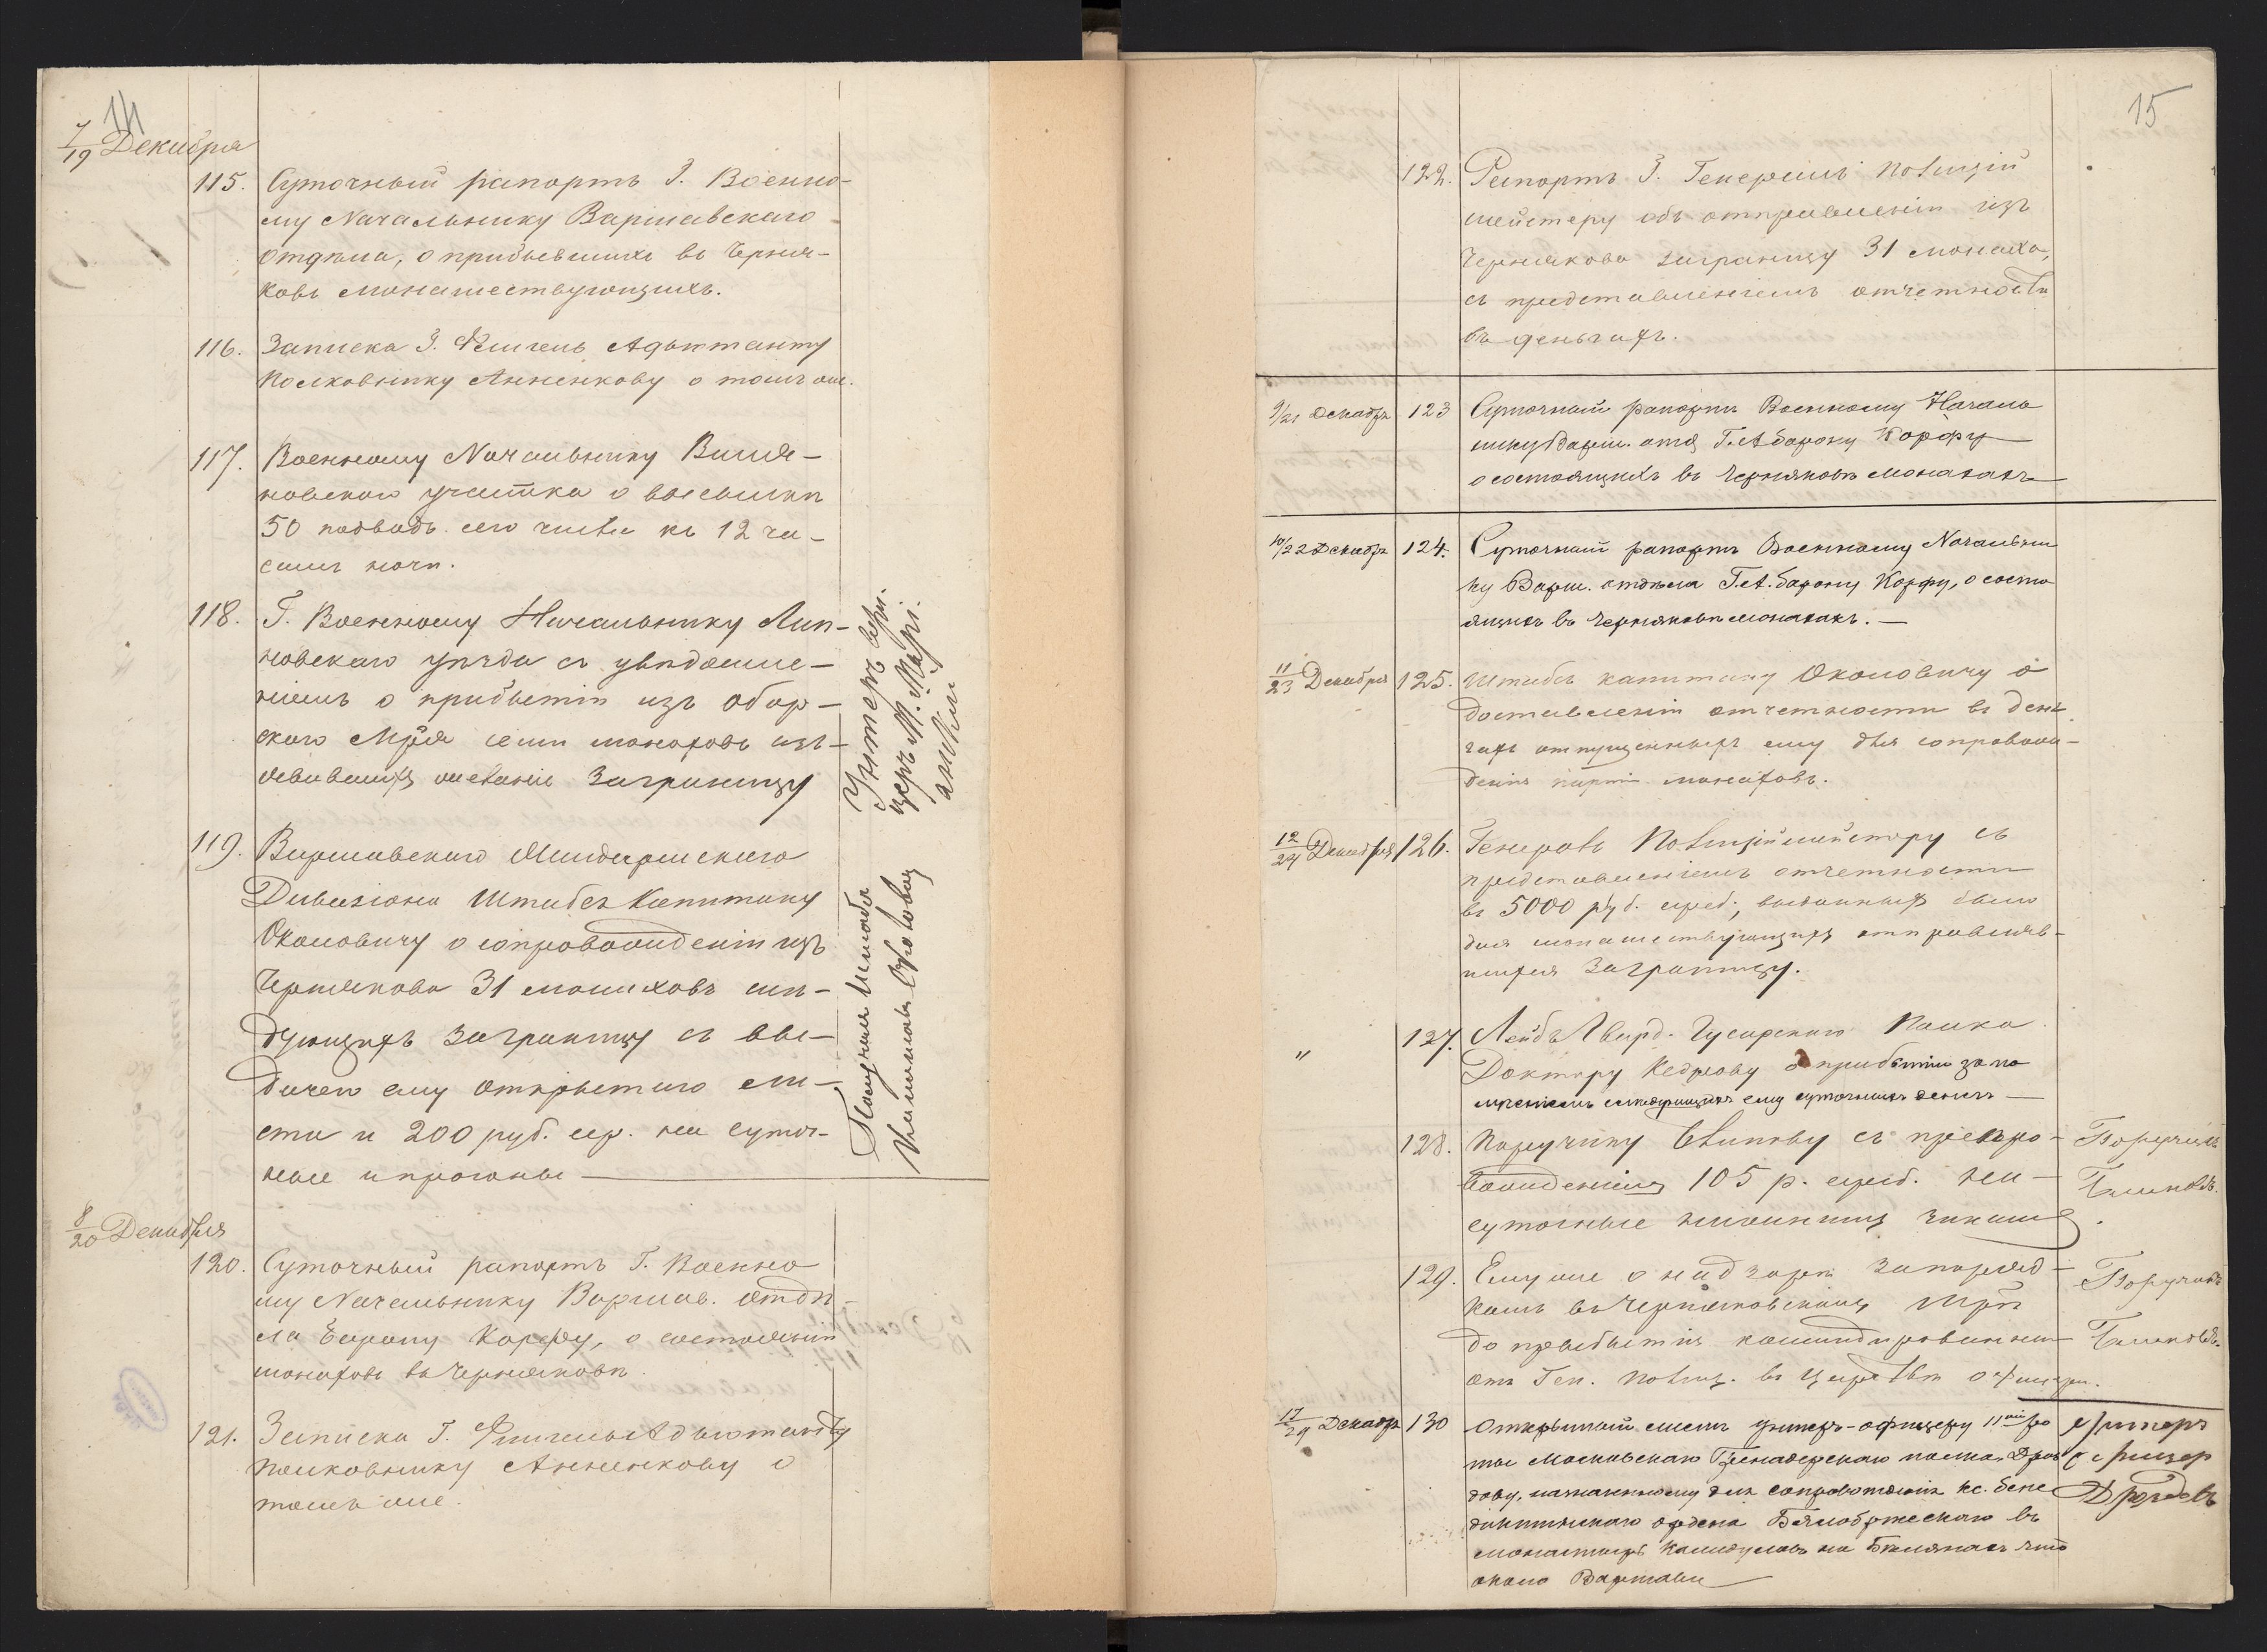 14
7/19 Декабря
115. Суточный рапортъ Г. Военно-
му Начальнику Варшавскаго
отдѣла, о прибывшихъ въ Черня-
ковъ монашествующихъ.
116. Записка Г. Флигель Адьютанту
Полковнику Анненкову о томъ же.
117. Военному Начальнику Виля-
новскаго участка о высылкѣ
50 подводъ сего числа къ 12 ча-
самъ ночи.
118. Г. Военному Начальнику Лип-
новскаго уѣзда съ увѣдомле-
ніемъ о прибытіи изъ Обор-
скаго Мр̃я семи монаховъ изъ-
явившихъ желаніе Заграницу
Унтеръ офи-
церъ М. Марі.
119. Варшавскаго Жандармскаго
Дивизіона Штабсъ Капитану
Околовичу о сопровожденіи изъ
Чернякова 31 монаховъ слѣ-
дующихъ Заграницу съ вы-
дачею ему открытаго ли-
ста и 200 руб. сер. на суточ-
ные и прогоны
Получилъ Штабсъ
Капитанъ Околовичъ
8/20 Декабря
120. Суточный рапортъ Г. Военно
му Начальнику Варшав. отдѣ-
ла Барону Корфу, о состояніи
монаховъ въ Черняковѣ
121. Записка Г. Флигель Адьютанту
Полковнику Анненкову о
томъ же.
15
122. Рапортъ Г. Генералъ Полицій
мейстеру объ отправленіи изъ
Чернякова заграницу 31 монаха,
съ представленіемъ отчетности
въ деньгахъ.
9/21 Декабр 123 Суточный рапортъ Военному Началь
нику Варш. отд Г.А. барону Корфу
о состоящихъ въ Черняковѣ монахахъ
10/22 Декабр 124. Суточный рапортъ Военному Начальни
ку Варш. отдѣла Г.А. барону Корфу, о состо
ящихъ въ Черняковѣ монахахъ.
11/23 Декабря 125. Штабсъ капитану Околовичу о
доставленіи отчетности въ день
гахъ отпущенныхъ ему для сопровож-
денія партіи монаховъ.
12/24 Декабря 126. Генералъ Полиціймейстеру съ
представленіемъ отчетности
въ 5000 руб. сереб., выданныхъ было
для монашествующихъ отправляв-
шихся Заграницу.
" 127. Лейбъ Гвард. Гусарскаго Полка
Доктору Кедрову о прибытіи за по
лученіемъ слѣдующихъ ему суточныхъ денегъ
128. Поручику Блинову съ препро-
вожденіемъ 105 р. сереб. на
суточные нижнимъ чинамъ
Поручикъ
Блиновъ.
129. Ему же о надзорѣ за поряд-
комъ въ Черняковскомъ Мр̃ѣ
до прибытія командированнаго
отъ Ген. Полиц. въ Царствѣ офицера.
Поручикъ
Блиновъ.
17/29 Декабр 130 Открытый листъ унтеръ-офицеру 11ой ро
ты Московскаго Гренадерскаго полка Дроз
дову, назначенному для сопровожденія кс. бене
диктинскаго ордена Бялобржескаго въ
монастырь Камедуловъ на Бѣлянахъ что
около Варшавы
Унтеръ
Офицер
Дроздовъ